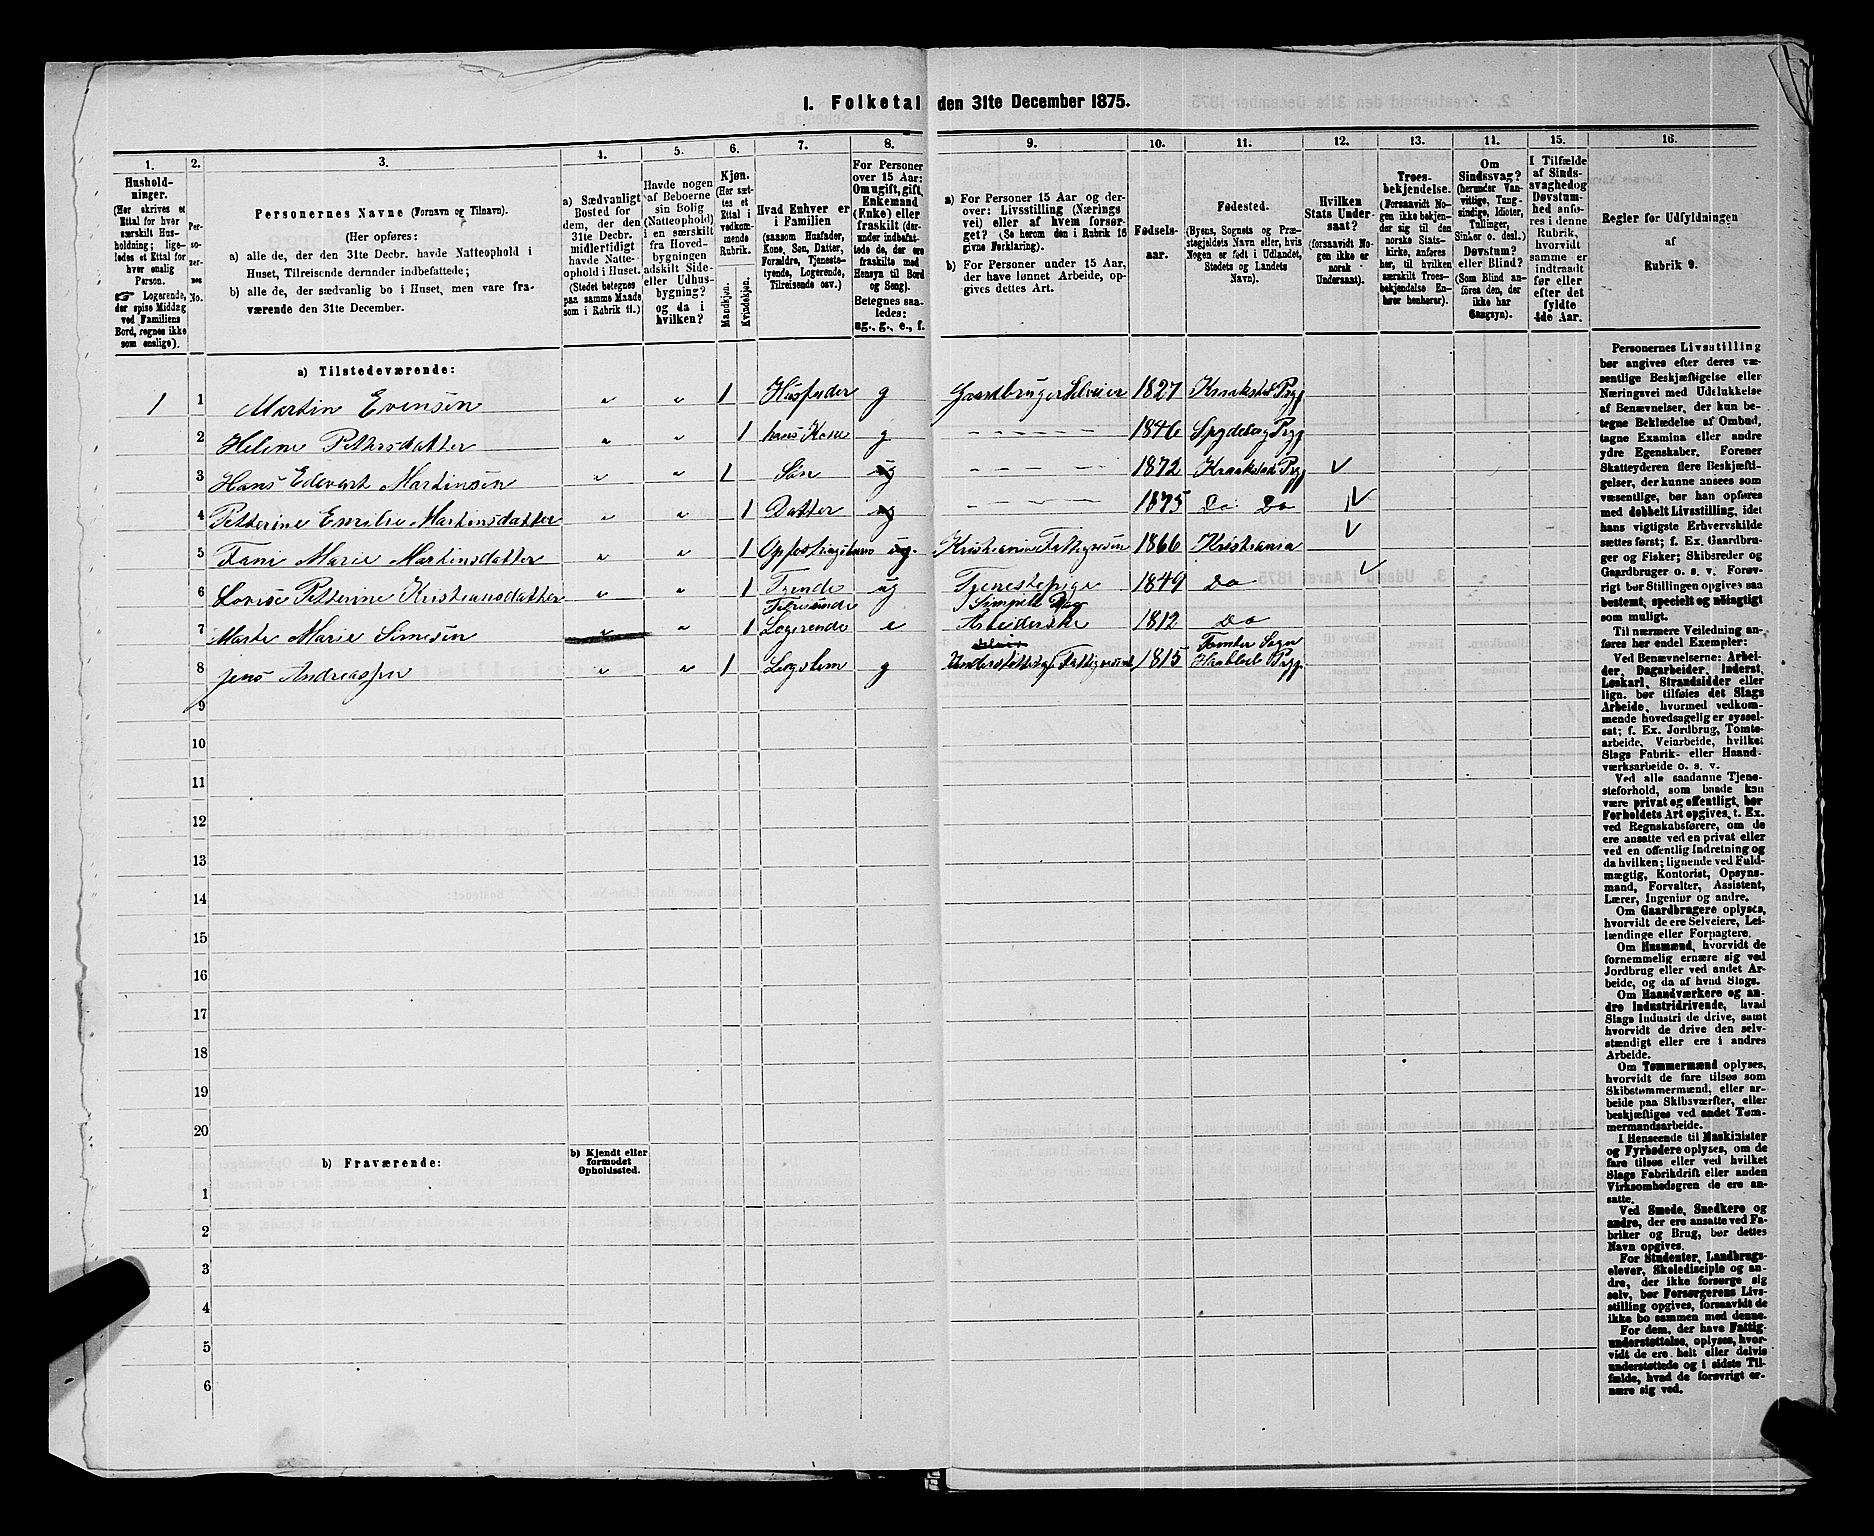 I. Folketal den 31te December 1875.
1. 2. 3. 4. 5. 6. 7. 8. 9. 10. 11. 12. 13. 14. 15. 16.
Hushold-
ninger.
(Her skrives et
Ettal for hver
særskilt Hus-
holdning; lige-
ledes et Ettal for
hver enslig
Person.
☞ Logerende,
der spise Middag
ved Familiens
Bord, regnes ikke
som enslige).
Per-
so-
ner-
nes
No.
Personernes Navne (Fornavn og Tilnavn).
(Her opføres:
a) alle de, der den 31te Decbr. havde Natteophold i
Huset, Tilreisende derunder indbefattede;
b) alle de, der sædvanlig bo i Huset, men vare fra-
værende den 31te December.
a) Sædvanligt
Bosted for
dem, der den
31te Decbr.
midlertidigt
havde Natte-
ophold i Huset.
(Stedet betegnes
paa samme Maade
som i Rubrik 11.)
Havde nogen
af Beboerne
sin Bolig
(Natteophold)
i en særskilt
fra Hoved-
bygningen
adskilt Side-
eller Udhus-
bygning?
og da i
hvilken?
Kjøn.
(Her sæt-
tes et
Ettal i
vedkom-
mende
Rubrik.
Mandkjøn.
Kvindekjøn.
Hvad Enhver er
i Familien
(saasom Husfader,
Kone, Søn, Datter,
Forældre, Tjeneste-
tyende, Logerende,
Tilreisende osv.)
For Personer
over 15 Aar:
Om ugift, gift,
Enkemand
(Enke) eller
fraskilt (der-
under indbefat-
tede de, der ere
fraskilte med
Hensyn til Bord
og Seng).
Betegnes saa-
ledes:
ug., g., e., f.
a) For Personer 15 Aar og der-
over: Livsstilling (Nærings
vei) eller af hvem forsør-
get? (Se herom den i Rubrik 16
givne Forklaring).
b) For Personer under 15 Aar,
der have lønnet Arbeide, op-
gives dettes Art.
Fødsels-
aar.
Fødested.
(Byens, Sognets og Præ-
stegjeldets Navn eller, hvis
Nogen er født i Udlandet,
Stedets og Landets
Navn).
Hvilken
Stats Under-
saat?
(forsaavidt No-
gen ikke er
norsk
Undersaat).
Troes-
bekjendelse.
(Forsaavidt No-
gen ikke bekjen-
der sig til den
norske Stats-
kirke, anføres
her, til hvilken
særskilt Troes-
bekjendelse En-
hver henhører).
Om
Sindssvag?
(herunder Van-
vittige, Tung-
sindige, Idioter,
Tullinger,
Sinker o. desl.)
Døvstum?
eller Blind?
(Som Blind an-
føres den, der
ikke har
Gangsyn).
I Tilfælde
af Sinds-
svaghed og
Døvstum-
hed anfø-
res i denne
Rubrik,
hvorvidt
samme er
indtraadt
før eller
efter det
fyldte
4de Aar.
Regler for Udfyldningen
af
Rubrik 9.
a) Tilstedeværende:
1 1 Martin Evensen " " 1 Husfader g Gaardbruger Selveier 1827 Kraakstad Prgj
2 Helene Pettersdatter " " 1 hans Kone g - - - - - 1846 Spydeberg Prgj
3 Hans Edevart Martinsen " " 1 Søn ug - - - - - 1872 Kraakstad Prgj
4 Petterine Emilie Martinsdatter " " 1 Datter ug - - - - 1875 Do Do
5 Fani Marie Martinsdatter " " 1 Opfostringsbarn ug. Kristiania Fattigvesen 1866 Kristiania
6 Lovise Petterine Kristiansdatter " " 1 Tyende ug Tjenestepige 1849 Do
7 Marte Marie Simesen " 1 Logerende e Arbeiderske 1812 Do
Tomter Sogn
8 Jens Andreassen " " 1 Legslem g Understøttet af Fattigvesenet 1815 Haabøl Prgj.
9
10
11
12
13
14
15
16
17
18
19
20
b) Fraværende:
b) Kjendt eller
formodet
Opholdssted.
1
2
3
4
5
6
Personernes Livsstilling
bør angives efter deres væ-
sentlige Beskjæftigelse eller
Næringsvei med Udelukkelse
af Benævnelser, der kun be-
tegne Beklædelse af Ombud,
tagne Examina eller andre
ydre Egenskaber. Forener
Skatteyderen flere Beskjæfti-
gelser, der kunne ansees som
væsentlige, bør han opføres
med dobbelt Livsstilling, idet
hans vigtigste Erhvervskilde
sættes først; f. Ex. Gaardbru-
ger og Fisker; Skibsreder og
Gaardbruger o. s. v. Forøv-
rigt bør Stillingen opgives saa
bestemt, specielt og nøiagtigt
som muligt.
Til nærmere Veiledning an-
føres her endel Exempler:
Ved Benævnelserne: Arbei-
der, Dagarbeider, Inderst,
Løskarl, Strandsidder eller
lign. bør tilføies det Slags
Arbeide, hvormed vedkom-
mende hovedsagelig er syssel-
sat; f. Ex. Jordbrug, Tomte-
arbeide, Veiarbeide, hvilket
Slags Fabrik- eller Haand-
værksarbeide o. s. v.
Ved alle saadanne Tjene-
steforhold, som baade kan
være privat og offentligt, bør
Forholdets Art opgives, t. Ex.
ved Regnskabsførere, om de
ere ansatte ved en privat eller
ved en offentlig Indretning og
da hvilken; lignende ved Fuld-
mægtig, Kontorist, Opsyns-
mand, Forvalter, Assistent,
Lærer, Ingeniør og andre.
Om Gaardbrugere oplyses,
hvorvidt de ere Selveiere, Lei-
lændinge eller Forpagtere.
Om Husmænd, hvorvidt de
fornemmelig ernære sig ved
Jordbrug eller ved andet Ar-
beide, og da af hvad Slags.
Om Haandværkere og an-
dre Industridrivende, hvad
Slags Industri de drive, samt
hvorvidt de drive den selv-
stændigt eller ere i andres
Arbeide.
Om Tømmermænd oplyses,
hvorvidt de fare tilsøs som
Skibstømmermænd, eller ar-
beide paa Skibsværfter, eller
beskjæftiges ved andet Tøm-
mermandsarbeide.
I Henseende til Maskinister
og Fyrbødere oplyses, om de
fare tilsøs eller ved hvilket
Slags Fabrikdrift eller anden
Virksomhedsgren de ere an-
satte.
Ved Smede, Snedkere og
andre, der ere ansatte ved Fa-
briker og Brug, bør dettes
Navn opgives.
For Studenter, Landbrugs-
elever, Skoledisciple og an-
dre, der ikke forsørge sig
selv, bør Forsørgerens Livs-
stilling opgives, forsaavidt de
ikke bo sammen med denne.
For dem, der have Fattig-
understøttelse, oplyses, hvor-
vidt de ere helt eller delvis
understøttede og i sidste Til-
fælde, hvad de forøvrigt er-
nære sig ved.